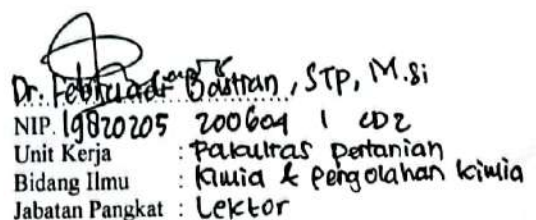 Dr. Februadi Bastian, STP, M.Si
NIP. 19820205 200604 1 002
Unit Kerja : Fakultas pertanian
Bidang Ilmu : Kimia & pengolahan kimia
Jabatan Pangkat : Lektor